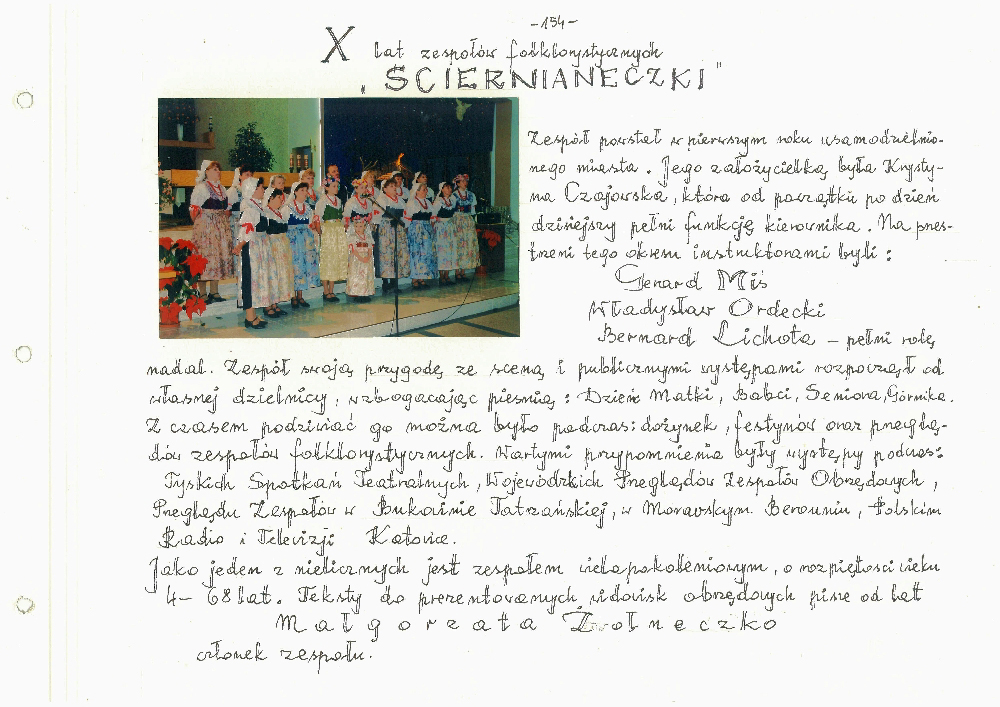 -154-
X lat zespołów folklorystycznych
"ŚCIERNIANECZKI"
Zespół powstał w pierwszym roku usamodzielnio-
nego miasta. Jego założycielką była Krysty-
na Czajowska, która od początku po dzień
dzisiejszy pełni funkcję kierownika. Na przes-
trzeni tego okresu instruktorami byli:
Gerard Miś
Władysław Ordecki
Bernard Lichota - pełni rolę
nadal. Zespół swoją przygodę ze sceną i publicznymi występami rozpoczął od
własnej dzielnicy, wzbogacając pieśnią: Dzień Matki, Babci, Seniora, Górnika.
Z czasem podziwiać go można było podczas: dożynek, festynów oraz przeglą-
dów zespołów folklorystycznych. Wartymi przypomnienia były występy podczas:
Tyskich Spotkań Teatralnych, Wojewódzkich Przeglądów Zespołów Obrzędowych,
Przeglądu Zespołów w Bukowinie Tatrzańskiej, w Moravskym Berounie, Polskim
Radio i Telewizji Katowice.
Jako jeden z nielicznych jest zespołem wielopokoleniowym, o rozpiętości wieku
4-68 lat. Teksty do prezentowanych widowisk obrzędowych pisze od lat
Małgorzata Żwołneczko
członek zespołu.